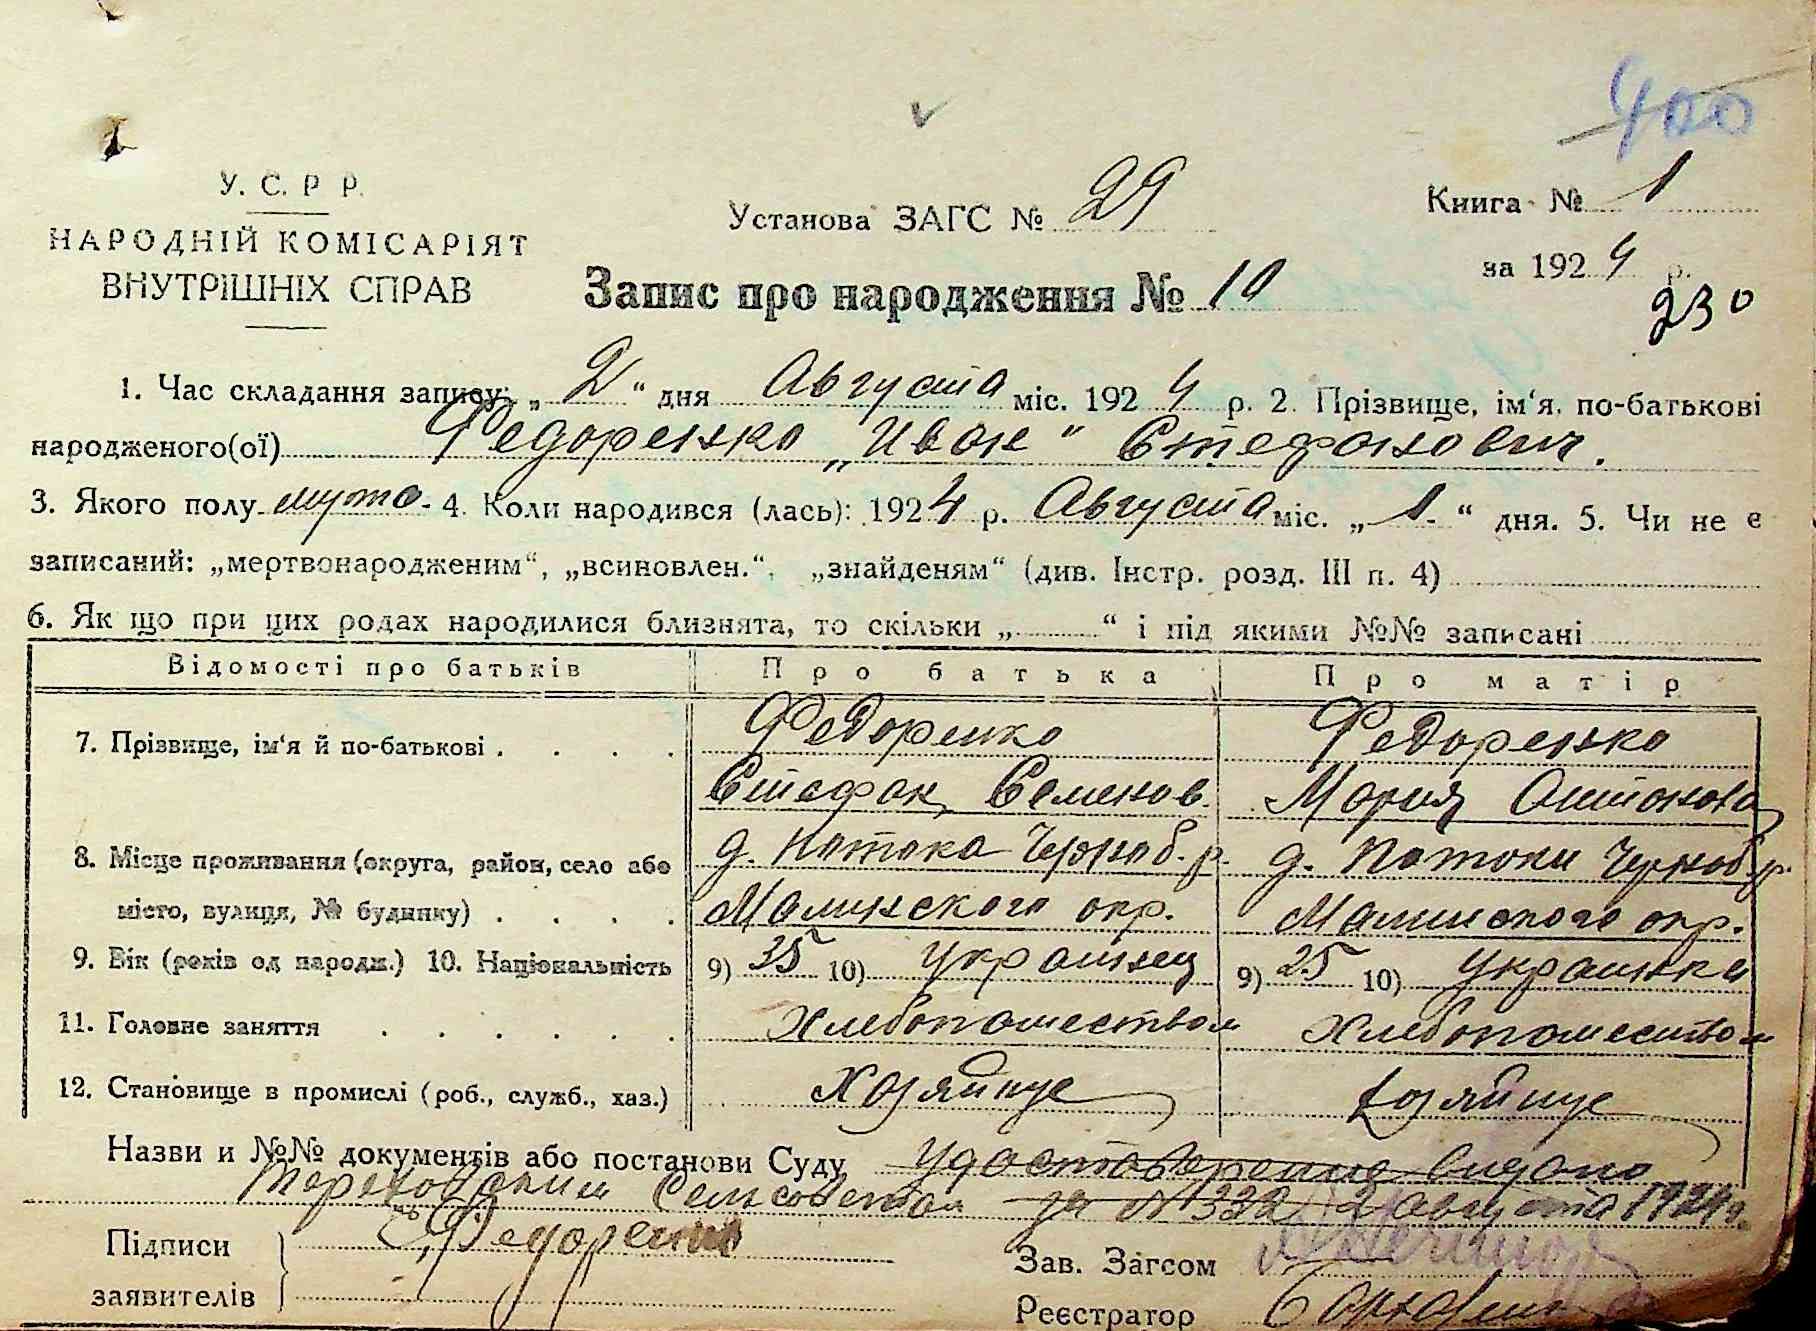 400
У. С. Р. Р.
НАРОДНІЙ КОМІСАРІЯТ
ВНУТРІШНІХ СПРАВ
Установа ЗАГС № 29
Книга № 1
за 1924 р.
Запис про народження № 10
230
1. Час складання запису: „2“ дня Августа міс. 1924 р. 2. Прізвище, ім‘я, по-батькові
народженого(ої) Федоренко „Иван“ Стефанович.
3. Якого полу муж 4. Коли народився (лась): 1924 р. Августа міс. „1“ дня. 5. Чи не є
записаний: „мертвонародженим“, „всиновлен.“, „знайденям“ (див. Інстр. розд. III п. 4)
6. Як що при цих родах народилися близнята, то скільки „ “ і під якими №№ записані
Відомості про батьків Про батька Про матір
7. Прізвище, ім‘я й по-батькові Федоренко Федоренко
Стефан Семенов. Мария Антонова
8. Місце проживання (округа, район, село або д. Потоки Черноб. р. д. Потоки Черноб. р.
місто, вулиця, № будинку) Малинского окр. Малинского окр.
9. Вік (років од народж.) 10. Національність 9) 35 10) Украинец 9) 25 10) Украинка
11. Головне заняття Хлебопашеством Хлебопашеством
12. Становище в промислі (роб., служб., хаз.) Хозяйнує Хозяйнує
Назви и №№ документів або постанови Суду удостоверение видано
Тереховским Сельсоветом за № 332 2 августа 1924 г.
Підписи
заявителів
Федоренко
Зав. Загсом
Реєстратор